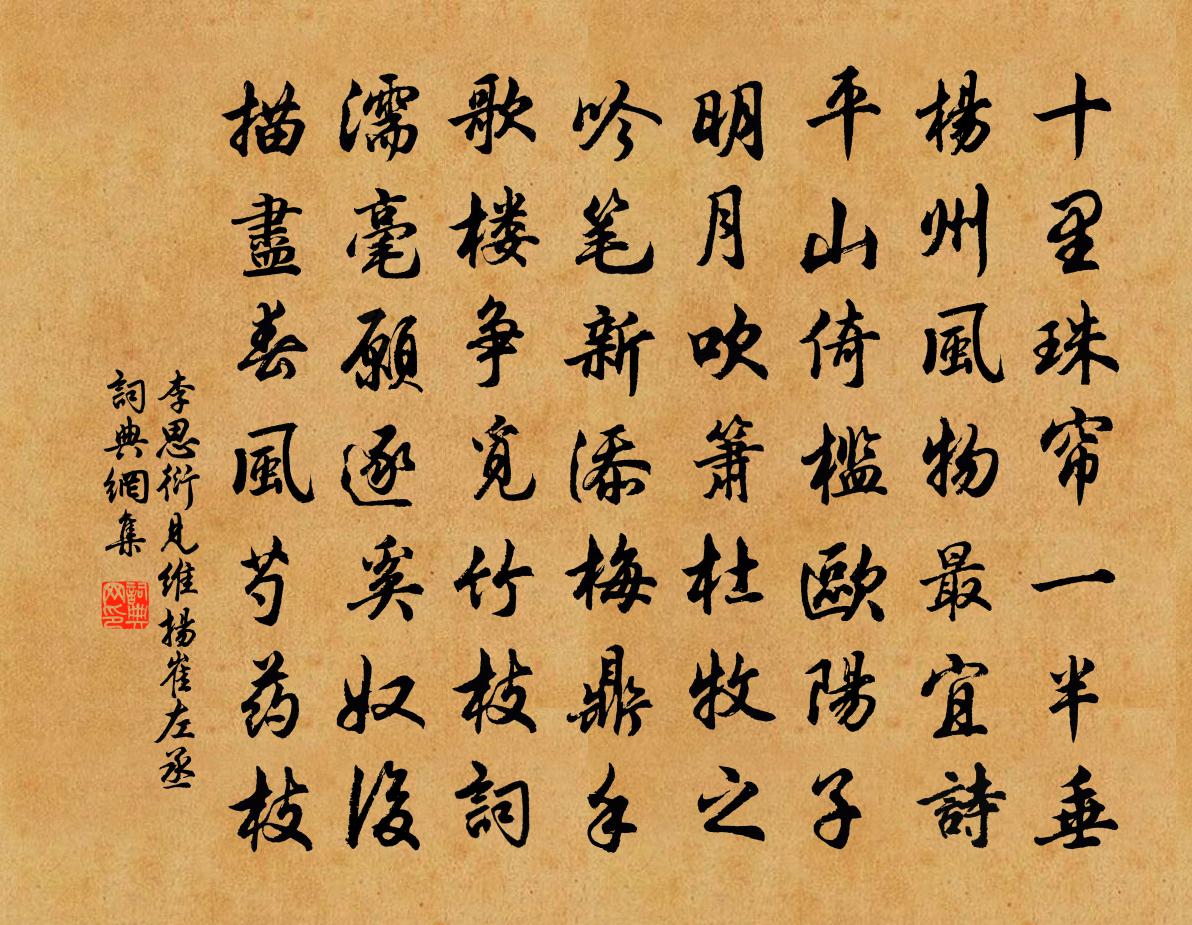 十里珠帘一半垂
楊州風物最宜詩
平山倚檻歐陽子
明月吹簫杜牧之
吟笔新添梅鼎手
歌楼争觅竹枝詞
濡毫願逐奚奴後
描盡春風芍药枝
李思衍見維揚崔左丞
詞典網集
詞典网印